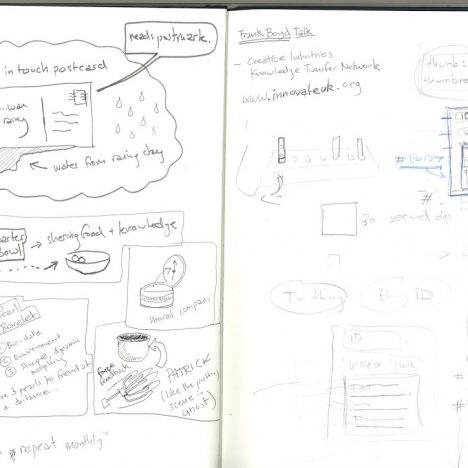 reads postmark.
in touch postcard
...was
rainy
← water from rainy day
Bowl → sharing food + knowledge
moral compass
Bracelet
① Bio-data
② Environment
③ Shape, dynamic
morphing
3 pearls to friend at
a distance...
Force
feedback
PATRICK
(like the pottery
scene
Ghost)
# repeat monthly"
Frank Boyd Talk
- Creative Industries
Knowledge Transfer Network
www.innovateuk.org
thumb:
thumbre
30 second dip
#
T = thing
thing ID
ID
VIDEO / LINK
TEXT
#
#